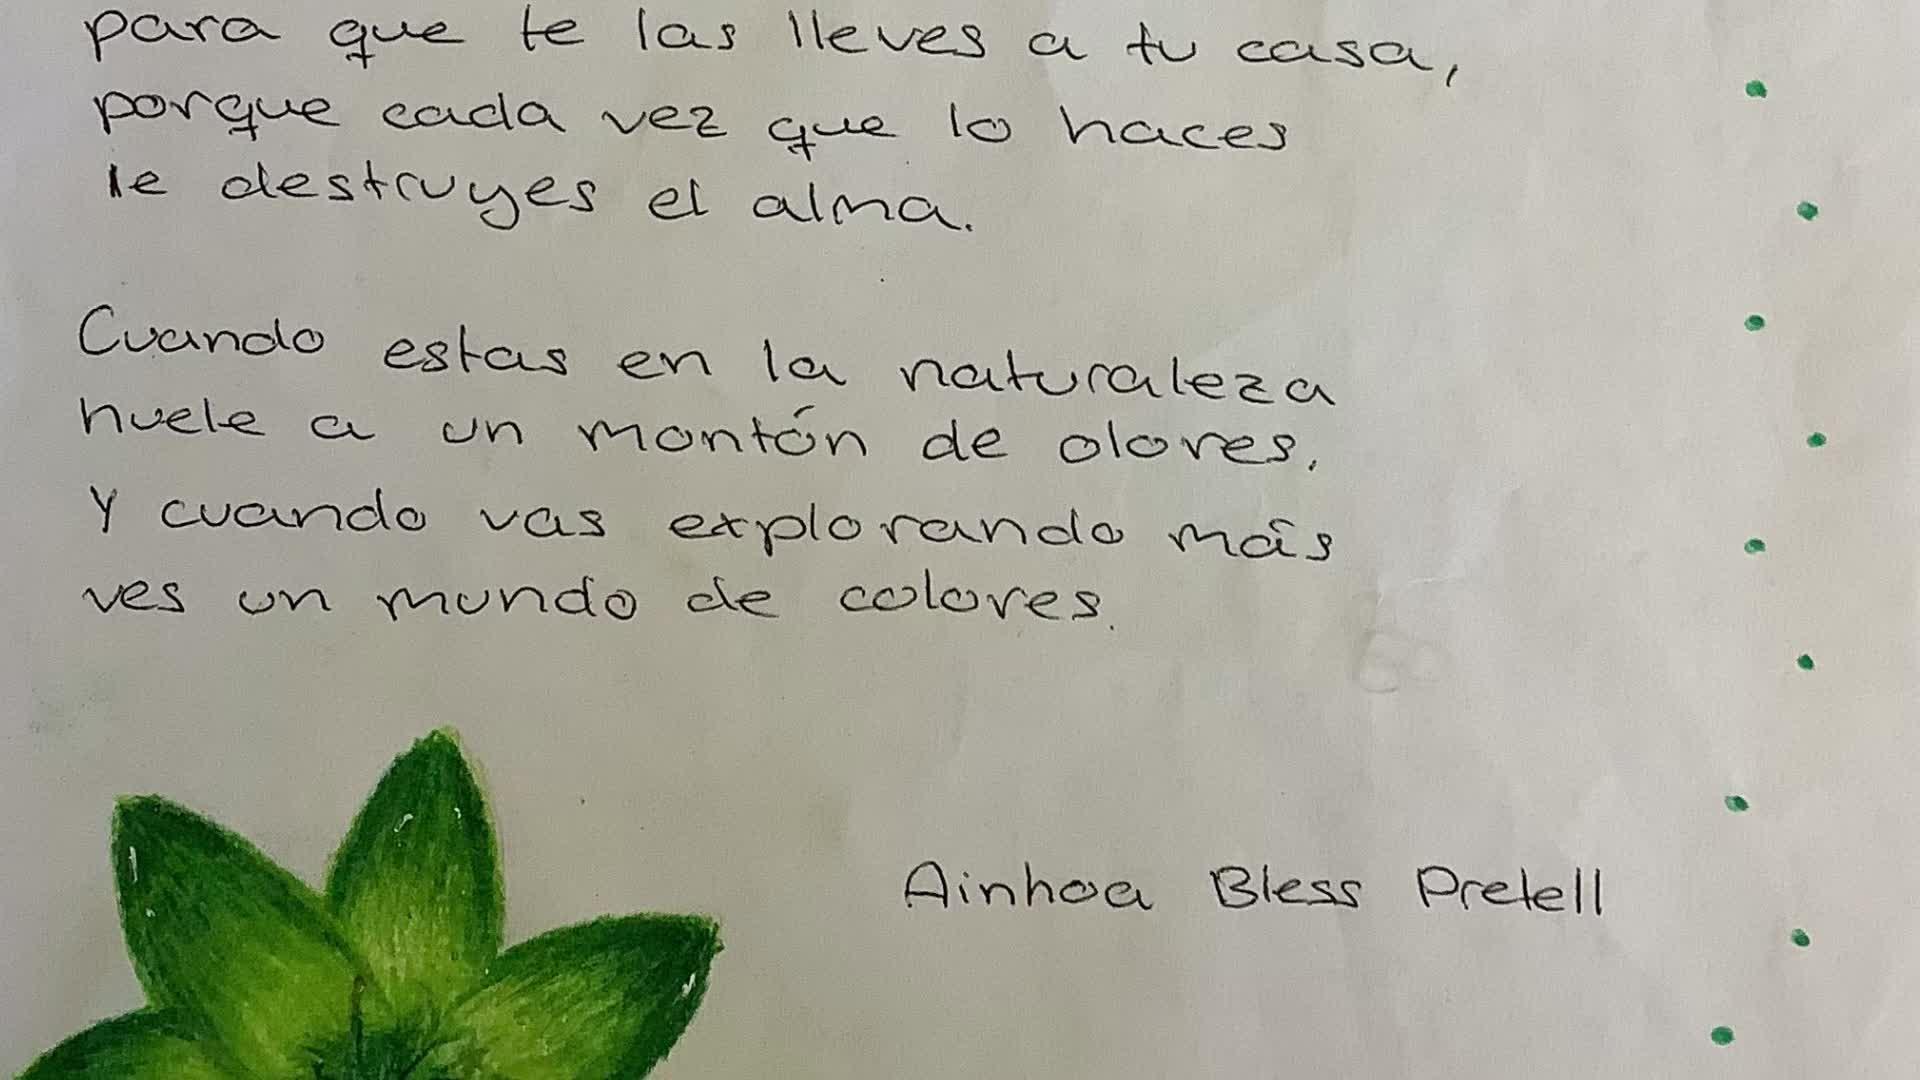 para que te las lleves a tu casa,
porque cada vez que lo haces
le destruyes el alma.
Cuando estas en la naturaleza
huele a un montón de olores.
Y cuando vas explorando más
ves un mundo de colores.
Ainhoa Bless Pretell